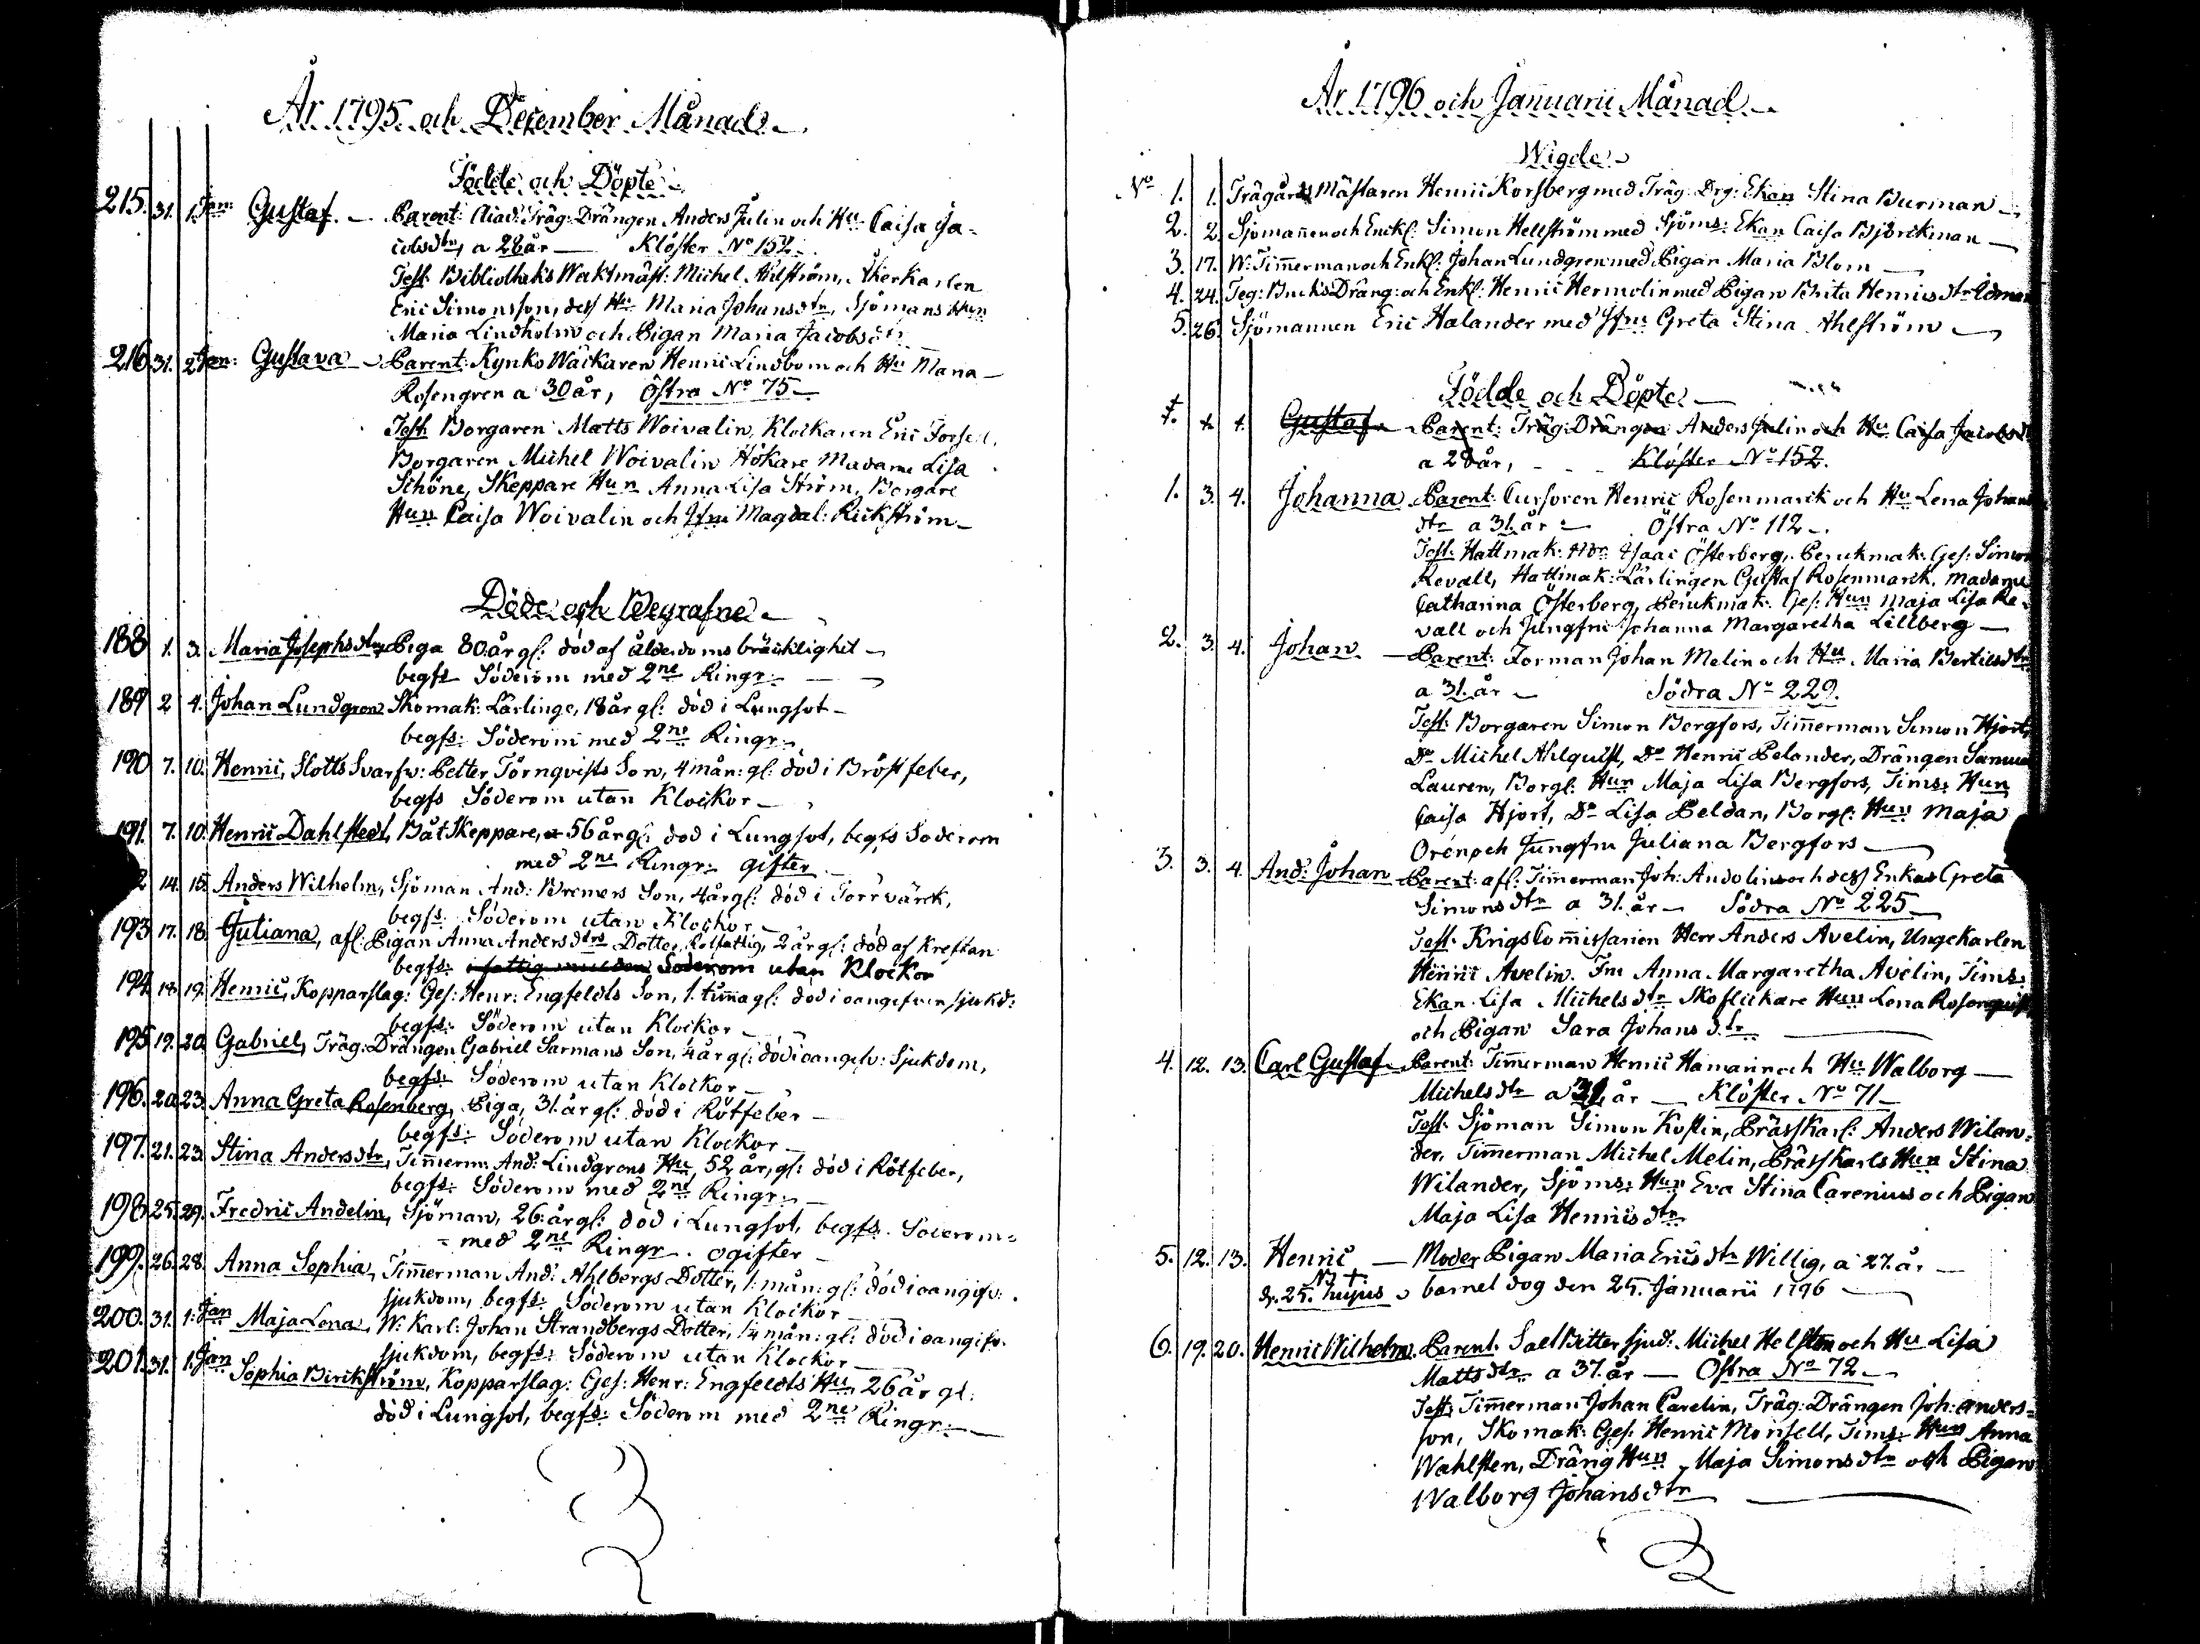 År 1795 och December Månad
Födde och Döpte
215. 31. 1. Jan: Gustaf. Parent: Acad: Träg: Drängen Anders Julin och Hu Caisa Ja-
cobsdtr, a 28 år Klöster No 152.
Test: Bibliotheks Wacktmäst: Michel Ahlström, Åkerkarlen
Eric Simonsson, dess Hu Maria Johansdtr, Sjömans Hun
Maria Lindholm och Pigan Maria Jacobsdtr
216. 31. 2. Jan: Gustava Parent: Rynko Wäckaren Henric Lindbom och Hu Maria
Rosengren a 30 år, Östra No 75
Test: Borgaren Matts Woivalin, Klockaren Eric Forsell,
Borgaren Michel Woivalin Hökare Madame Lisa
Schöne, Skeppare Hun Anna Lisa Ström, Borgare
Hun Caisa Woivalin och Jfru Magdal: Rickström
Döde och Begrafne
188 1. 3. Maria Josephsdtr, Piga 80 år gl: död af ålderdoms bräcklighet
begfs Söderom med 2ne Ringr:
189 2 4. Johan Lundgren Skomak: Lärlinge, 18 år gl: död i Lungsot
begfs: Söderom med 2ne Ringr:
190 7. 10. Henric, Slotts Svarfv: Petter Törnqvists Son, 4 mån: gl: död i Bröstfeber,
begfs Söderom utan Klockor
191. 7. 10. Henric Dahlstedt, Båt Skeppare, 56 år gl: död i Lungsot, begfs Söderom
med 2ne Ringr: gifter
2 14. 15. Anders Wilhelm, Sjöman And: Bremers Son, 4 år gl: död i Torrvärck,
begfs: Söderom utan Klockor
193 17. 18. Juliana, afl: Pigan Anna Andersdtrs Dotter, Rotfattig, 2 år gl: död af Kreftan
begfs: Söderom utan Klockor
194 18. 19. Henric, Kopparslag: Ges: Henr: Engfeldts Son, 1. timma gl: död i oangifven sjukd:
begfs: Söderom utan Klockor
195 19. 20. Gabriel, Träg: Drängen Gabriel Sarmans Son, 4 år gl: död i oangifv: Sjukdom,
begfs: Söderom utan Klockor
196. 20. 23. Anna Greta Rosenberg, Piga, 31. år gl: död i Rötfeber
begfs: Söderom utan Klockor
197. 21. 23. Stina Andersdtr, Timerm: And: Lindgrens Hu, 52 år, gl: död i Rötfeber,
begfs: Söderom med 2ne Ringr:
198. 25. 29. Fredric Andelin, Sjöman, 26. år gl: död i Lungsot, begfs. Söderom
med 2ne Ringr. ogifter
199. 26. 28. Anna Sophia, Timerman And: Ahlbergs Dotter, 1. mån: gl: död i oangifv:
sjukdom, begfs: Söderom utan Klockor
200. 31. 1. Jan Maja Lena, W: Karl: Johan Strandbergs Dotter, 1/4 mån: gl: död i oangifv.
sjukdom, begfs: Söderom utan Klockor
201. 31. 1. Jan Sophia Birckström, Kopparslag: Ges: Henr: Engfeldts Hu, 26 år gl:
död i Lungsot, begfs: Söderom med 2ne Ringr:
År 1796 och Januarii Månad
Wigde
No 1. 1. Trägårds Mästaren Henric Korsberg med Träg: Drg: Ekan Stina Burman
2. 2. Sjömannen och Enckl: Simon Hellström med Sjöms: Ekan Caisa Björckman
3. 17. W: Timerman och Enkl: Johan Lundgren med Pigan Maria Blom
4. 24. Teg: Bruks Dräng: och Enkl: Henric Hermolin med Pigan Brita Henricsdtr
5. 26. Sjömannen Eric Halander med Jfru Greta Stina Ahlström
Födde och Döpte
1. 1. 1. Gustaf Parent: Träg: Drängen Anders Julin och Hu Caisa Jacobsdtr
a 28 år, Klöster No 152.
1. 3. 4. Johanna Parent: Cursoren Henric Rosenmarck och Hu Lena Johans
dtr a 31. år Östra No 112.
Test: Hattmak: Isaac Österberg, Perukmak: Ges: Simon
Revall, Hattmak: Lärlingen Gustaf Rosenmarck. Madame
Catharina Österberg, Perukmak: Ges: Hun Maja Lisa Re-
vall och Jungfru Johanna Margaretha Lillberg
2. 3. 4. Johan Parent: Forman Johan Melin och Hu Maria Bertilsdtr
a 31. år Södra No 229.
Test: Borgaren Simon Bergfors, Timerman Simon Hjort,
Do Michel Ahlquist, Do Henric Pelander, Drängen Samuel
Lauren, Borgl: Hun Maja Lisa Bergfors, Tims: Hun
Caisa Hjort, Do Lisa Peldan, Borgl: Hun Maja
Orén och Jungfru Juliana Bergfors
3. 3. 4. And: Johan Parent: afl: Timerman Joh: Andolin och dess Enka Greta
Simonsdtr a 31. år Södra No 225
Test: Krigs Commissarien Herr Anders Avelin, Ungekarlen
Henric Avelin. Fru Anna Margaretha Avelin, Tims:
Ekan Lisa Michelsdtr Skoflickare Hun Lena Rosenquist
och Pigan Sara Johansdtr
4. 12. 13. Carl Gustaf Parent: Timerman Henric Hamarin och Hu Walborg
Michelsdtr a 31 år Klöster No 71
Test: Sjöman Simon Kostin, Prässkarl: Anders Wilan-
der, Timerman Michel Melin, Prässkarls Hun Stina
Wilander, Sjöms: Hun Eva Stina Carenius och Pigan
Maja Lisa Henricsdtr
5. 12. 13. Henric Moder Pigan Maria Ericsdtr Willig, a 27. år
d. 25. hujus barnet dog den 25. Januarii 1796
6. 19. 20. Henric Wilhelm. Parent. Michel Helsten och Hu Lisa
Mattsdtr a 37. år Östra No 72
Test: Timerman Johan Carelin, Träg: Drängen Joh: Anders-
son, Skomak: Ges: Henric Monsell, Tims: Hun Anna
Wahlsten, Dräng Hun Maja Simonsdtr och Pigan
Walborg Johansdtr